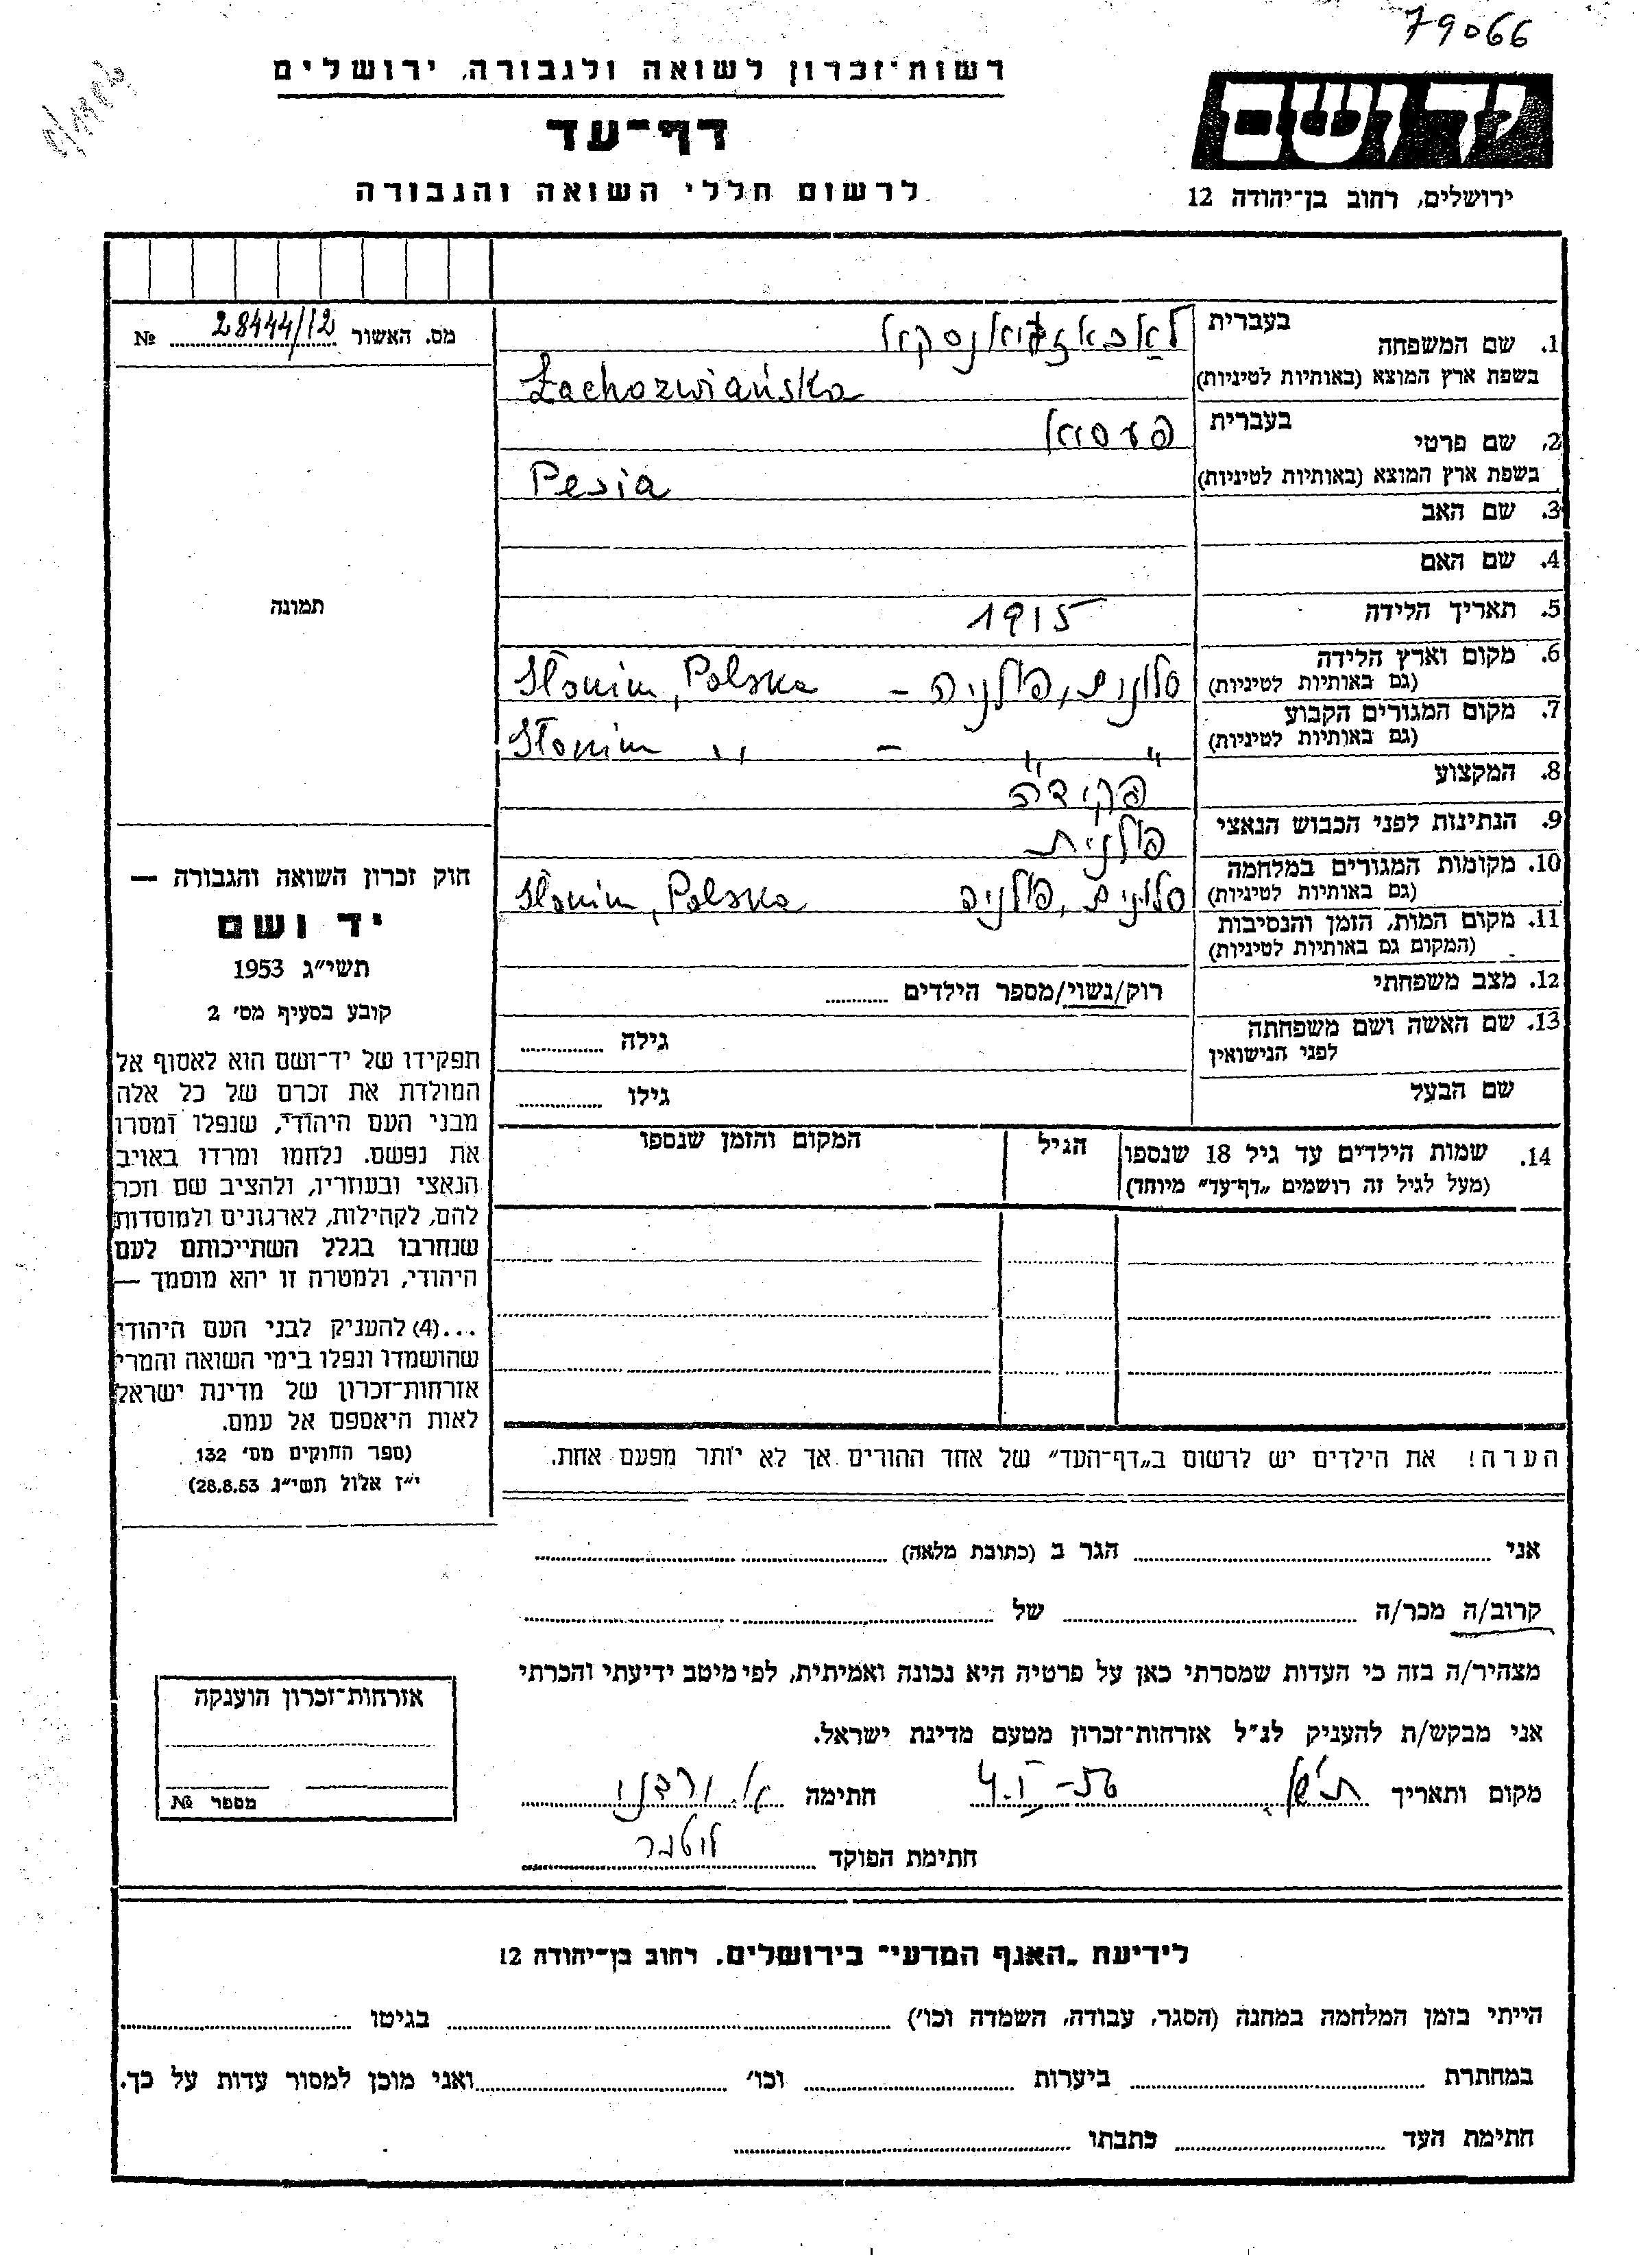 79066
רשות־זכרון לשואה ולגבורה, ירושלים
יד ושם
דף־עד
לרשום חללי השואה והגבורה
ירושלים, רחוב בן־יהודה 12
מס. האשור 28444/12 №
1. שם המשפחה
בעברית
לאכאזוויאנסקא
בשפת ארץ המוצא (באותיות לטיניות)
Łachozwiańska
2. שם פרטי
בעברית
פעסיא
בשפת ארץ המוצא (באותיות לטיניות)
Pesia
3. שם האב
4. שם האם
תמונה
5. תאריך הלידה
1915
6. מקום וארץ הלידה
(גם באותיות לטיניות)
סלונים, פולניה – Słonim, Polska
7. מקום המגורים הקבוע
(גם באותיות לטיניות)
" " – Słonim "
8. המקצוע
פקידה
9. הנתינות לפני הכבוש הנאצי
פולנית
10. מקומות המגורים במלחמה
(גם באותיות לטיניות)
סלונים, פולניה Słonim, Polska
11. מקום המות, הזמן והנסיבות
(המקום גם באותיות לטיניות)
12. מצב משפחתי
רוק/נשוי/מספר הילדים
13. שם האשה ושם משפחתה
לפני הנישואין
גילה
שם הבעל
גילו
14. שמות הילדים עד גיל 18 שנספו
(מעל לגיל זה רושמים „דף־עד" מיוחד)
הגיל
המקום והזמן שנספו
חוק זכרון השואה והגבורה —
יד ושם
תשי"ג 1953
קובע בסעיף מס' 2
תפקידו של יד־ושם הוא לאסוף אל
המולדת את זכרם של כל אלה
מבני העם היהודי, שנפלו ומסרו
את נפשם, נלחמו ומרדו באויב
הנאצי ובעוזריו, ולהציב שם וזכר
להם, לקהילות, לארגונים ולמוסדות
שנחרבו בגלל השתייכותם לעם
היהודי, ולמטרה זו יהא מוסמך —
...(4) להעניק לבני העם היהודי
שהושמדו ונפלו בימי השואה והמרי
אזרחות־זכרון של מדינת ישראל
לאות היאספם אל עמם.
(ספר החוקים מס' 132
י"ז אלול תשי"ג 28.8.53)
הערה! את הילדים יש לרשום ב„דף־העד" של אחד ההורים אך לא יותר מפעם אחת.
אני הגר ב (כתובת מלאה)
קרוב/ה מכר/ה של
מצהיר/ה בזה כי העדות שמסרתי כאן על פרטיה היא נכונה ואמיתית, לפי מיטב ידיעתי והכרתי
אני מבקש/ת להעניק לנ"ל אזרחות־זכרון מטעם מדינת ישראל.
מקום ותאריך 4.I–56 חתימה
חתימת הפוקד
אזרחות־זכרון הוענקה
מספר №
לידיעת „האגף המדעי" בירושלים, רחוב בן־יהודה 12
הייתי בזמן המלחמה במחנה (הסגר, עבודה, השמדה וכו') בגיטו
במחתרת ביערות וכו' ואני מוכן למסור עדות על כך.
חתימת העד כתבתו